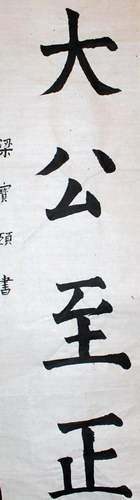 大公至正
梁寳頤書